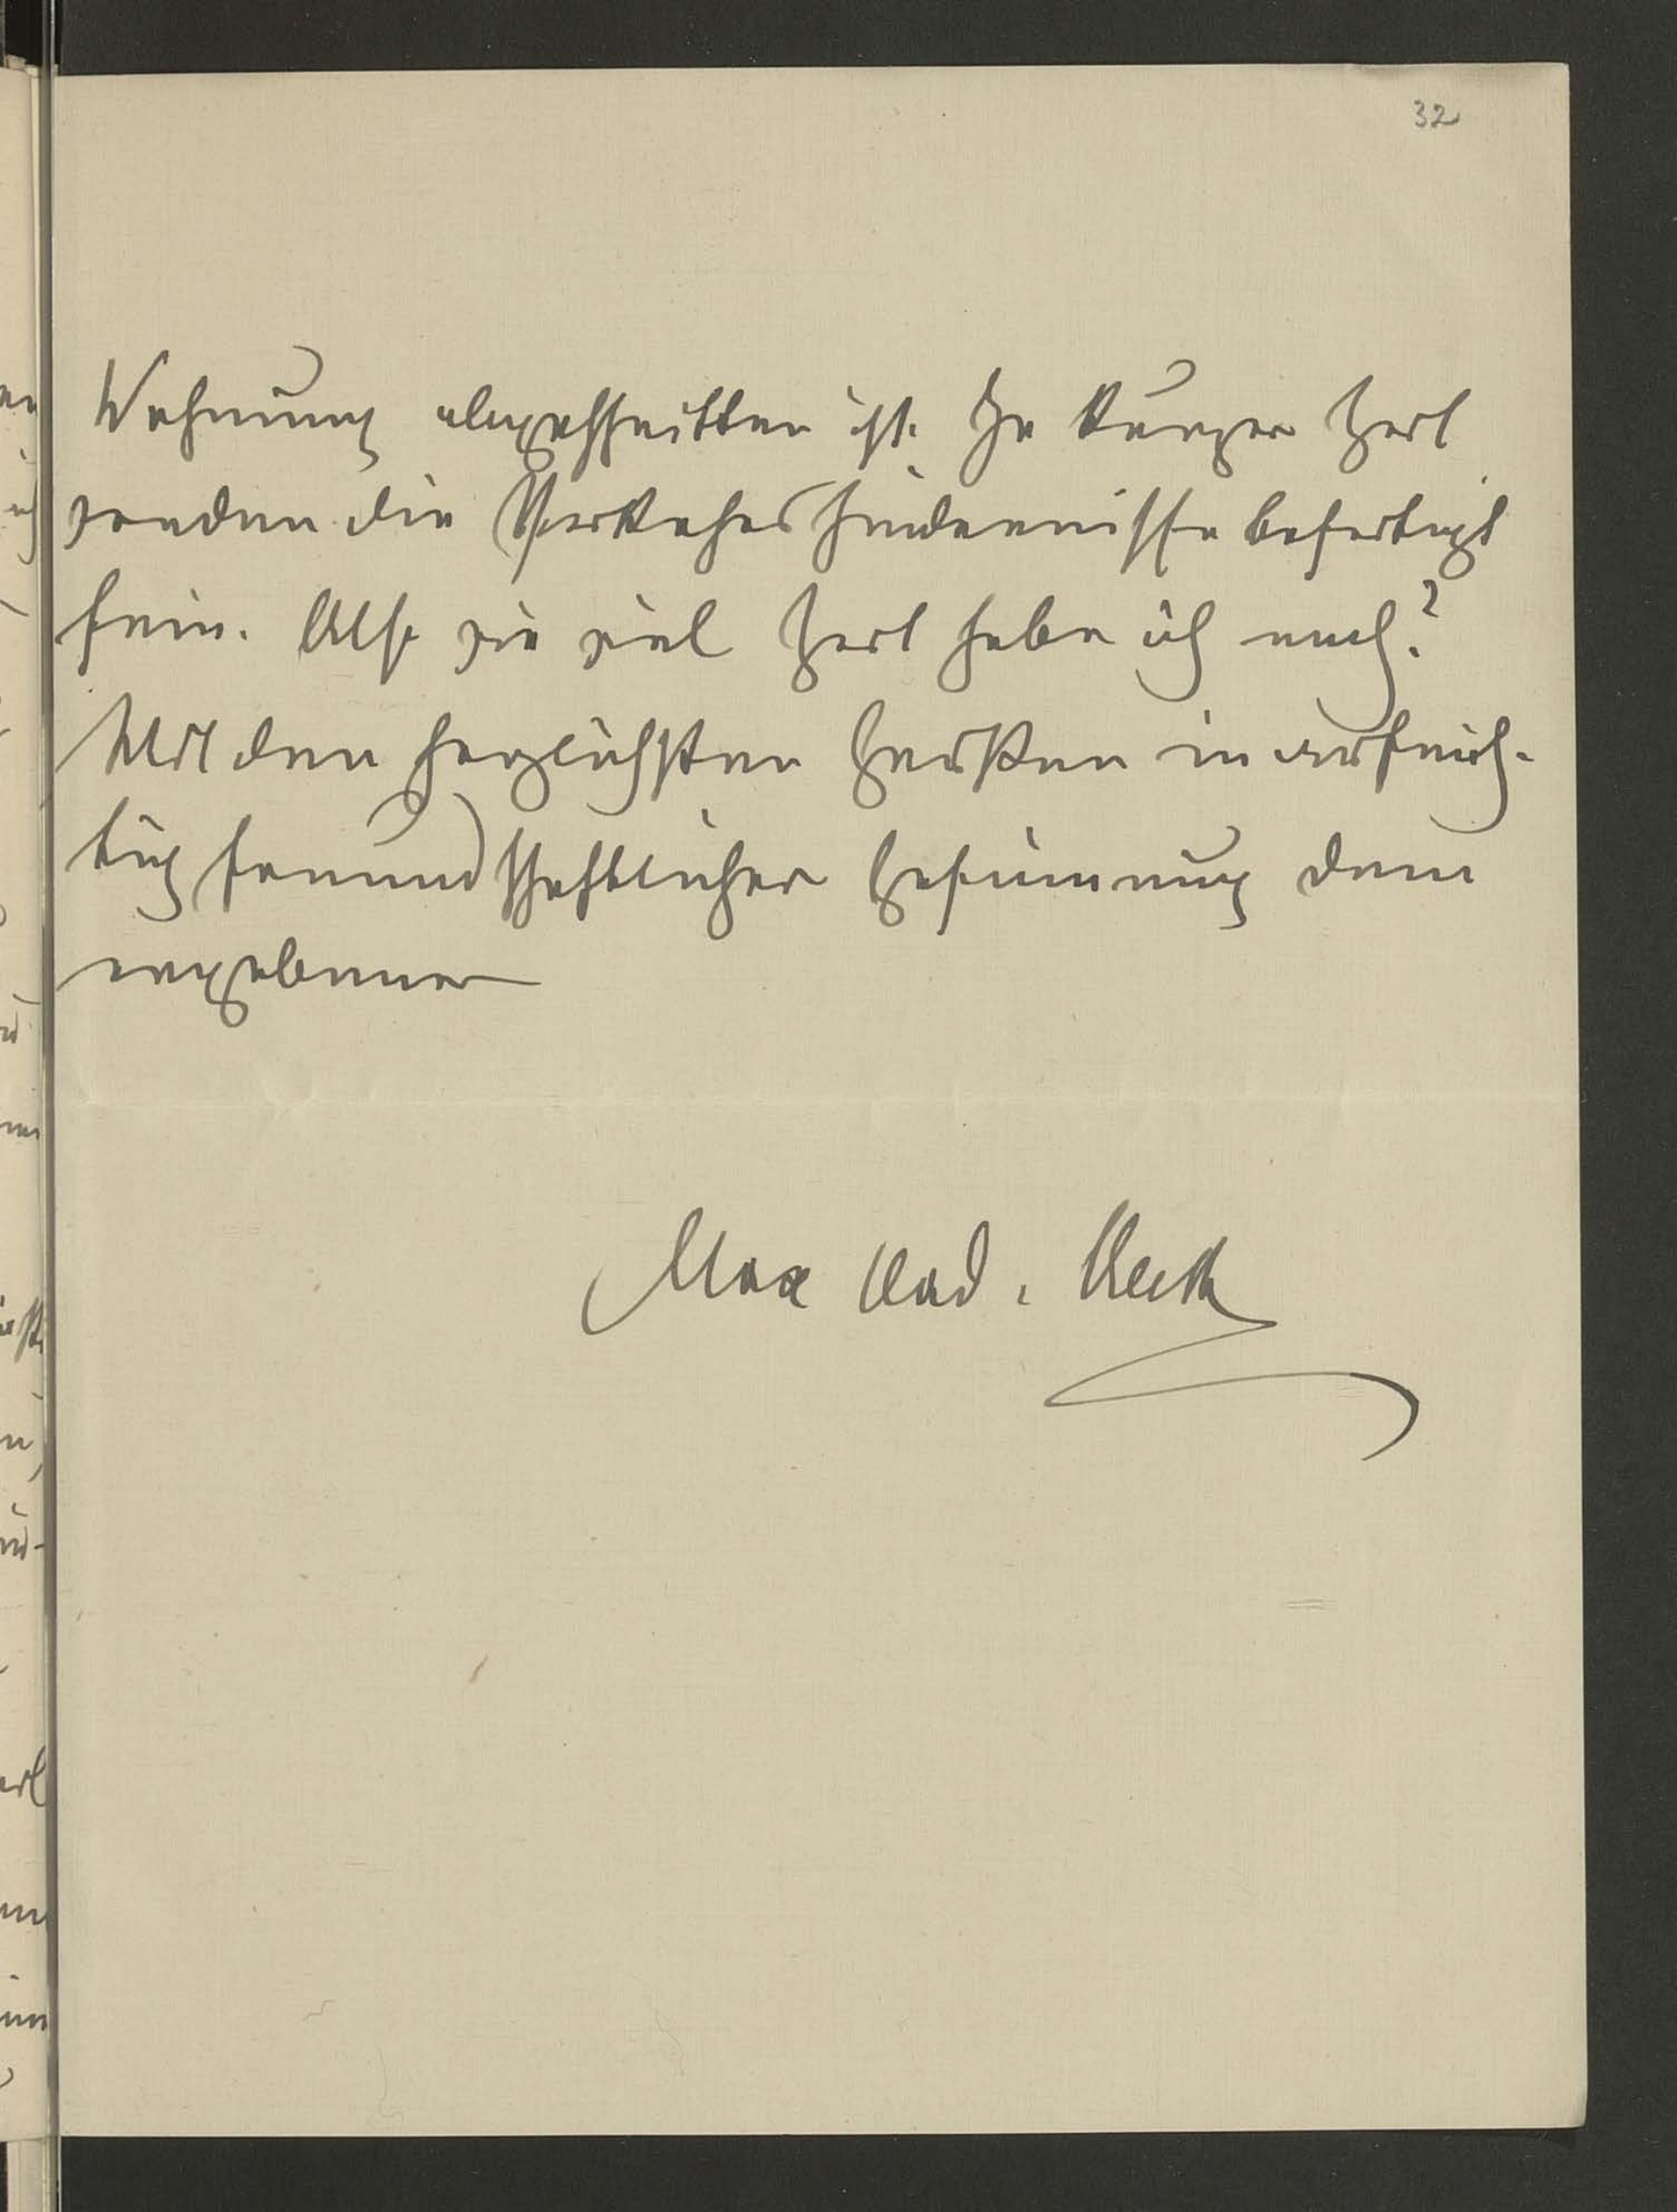 32
Wohnung abgeschnitten ist. In kurzer Zeit
werden die Verkehrshindernisse beseitigt
sein. Also wie viel Zeit habe ich noch?
Mit den herzlichsten Grüßen in aufrich-
tig freundschaftlicher Gesinnung Dein
ergebener
Max